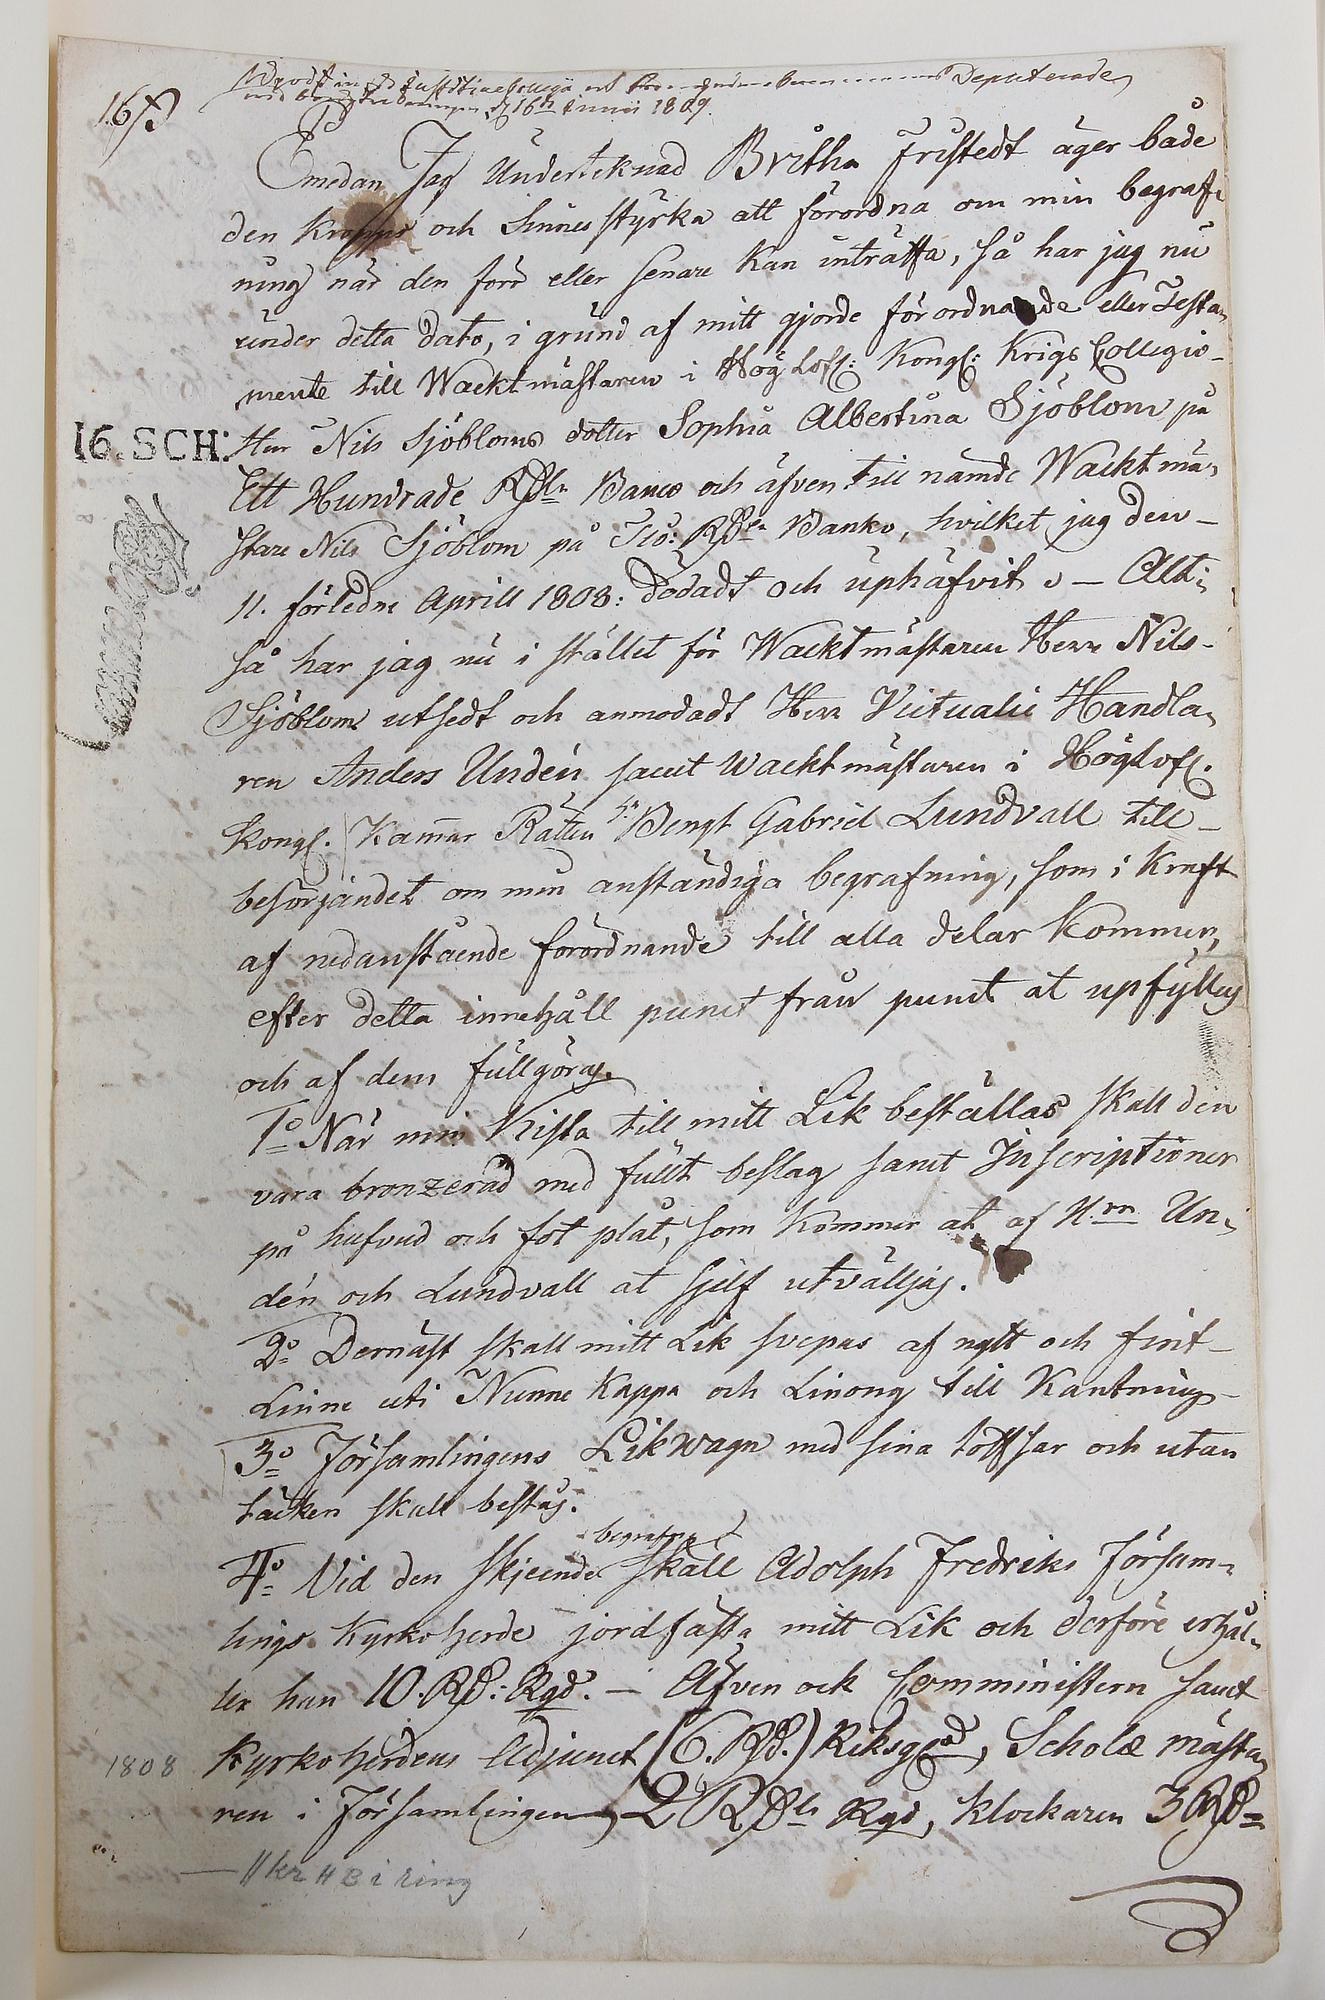 16 ß
Deputerade
16de Junii 1809.
Emedan Jag Underteknad Britha Fristedt äger både
den kropps och Sinnes styrka att förordna om min begraf-
ning när den förr eller senare kan inträffa, så har jag nu
under detta dato, i grund af mitt gjorde förordnande eller Testa-
mente till Wacktmästaren i Hög Lofl: Kongl: Krigs Collegio-
16. SCH:
Herr Nils Sjöbloms dotter Sophia Albertina Sjöblom på
Ett Hundrade Rdlr Banco och äfven till nämde Wacktmä-
stare Nils Sjöblom på Tio: Rdlr Banko, hvilket jag den-
11. förledne Aprill 1808: dödadt och uphäfvit. - Allt-
så har jag nu i stället för Wacktmästaren Herr Nils-
Sjöblom utsedt och anmodadt Herr Victualie Handla-
ren Anders Undén samt Wacktmästaren i Höglofl.
Kongl. Kam̅ar Rätten Hr Bengt Gabriel Lundvall till-
besörjandet om min anständiga begrafning, som i kraft
af nedanstående förordnande till alla delar kommer,
efter detta innehåll punct från punct at upfyllas
och af dem fullgöras.
1o När min Kista till mitt Lik beställas skall den
vara bronzerad med fullt beslag samt Inscriptioner
på hufvud och fot plåt, som kommer at af Hrn Un-
dén och Lundvall at sjelf utväljas.
2o Dernäst skall mitt Lik svepas af nytt och fint-
Linne uti Nunne Kappa och Linong till Kantning-
3o Församlingens Likwagn med sina toffsar och utan
täcken skall bestås.
begrafng
4o Vid den skjeende skall Adolph Fredriks Församl-
lings Kyrkoherde jordfästa mitt Lik och derföre erhål-
ler han 10. Rd: Rgd. - Äfven ock Comministern samt
1808
Kyrkoherdens Adjunct (6. Rd.) Riksgd, Scholæ mästa-
ren i Församlingen 2 Rdlr Rgd, klockaren 3 Rd=
i ring